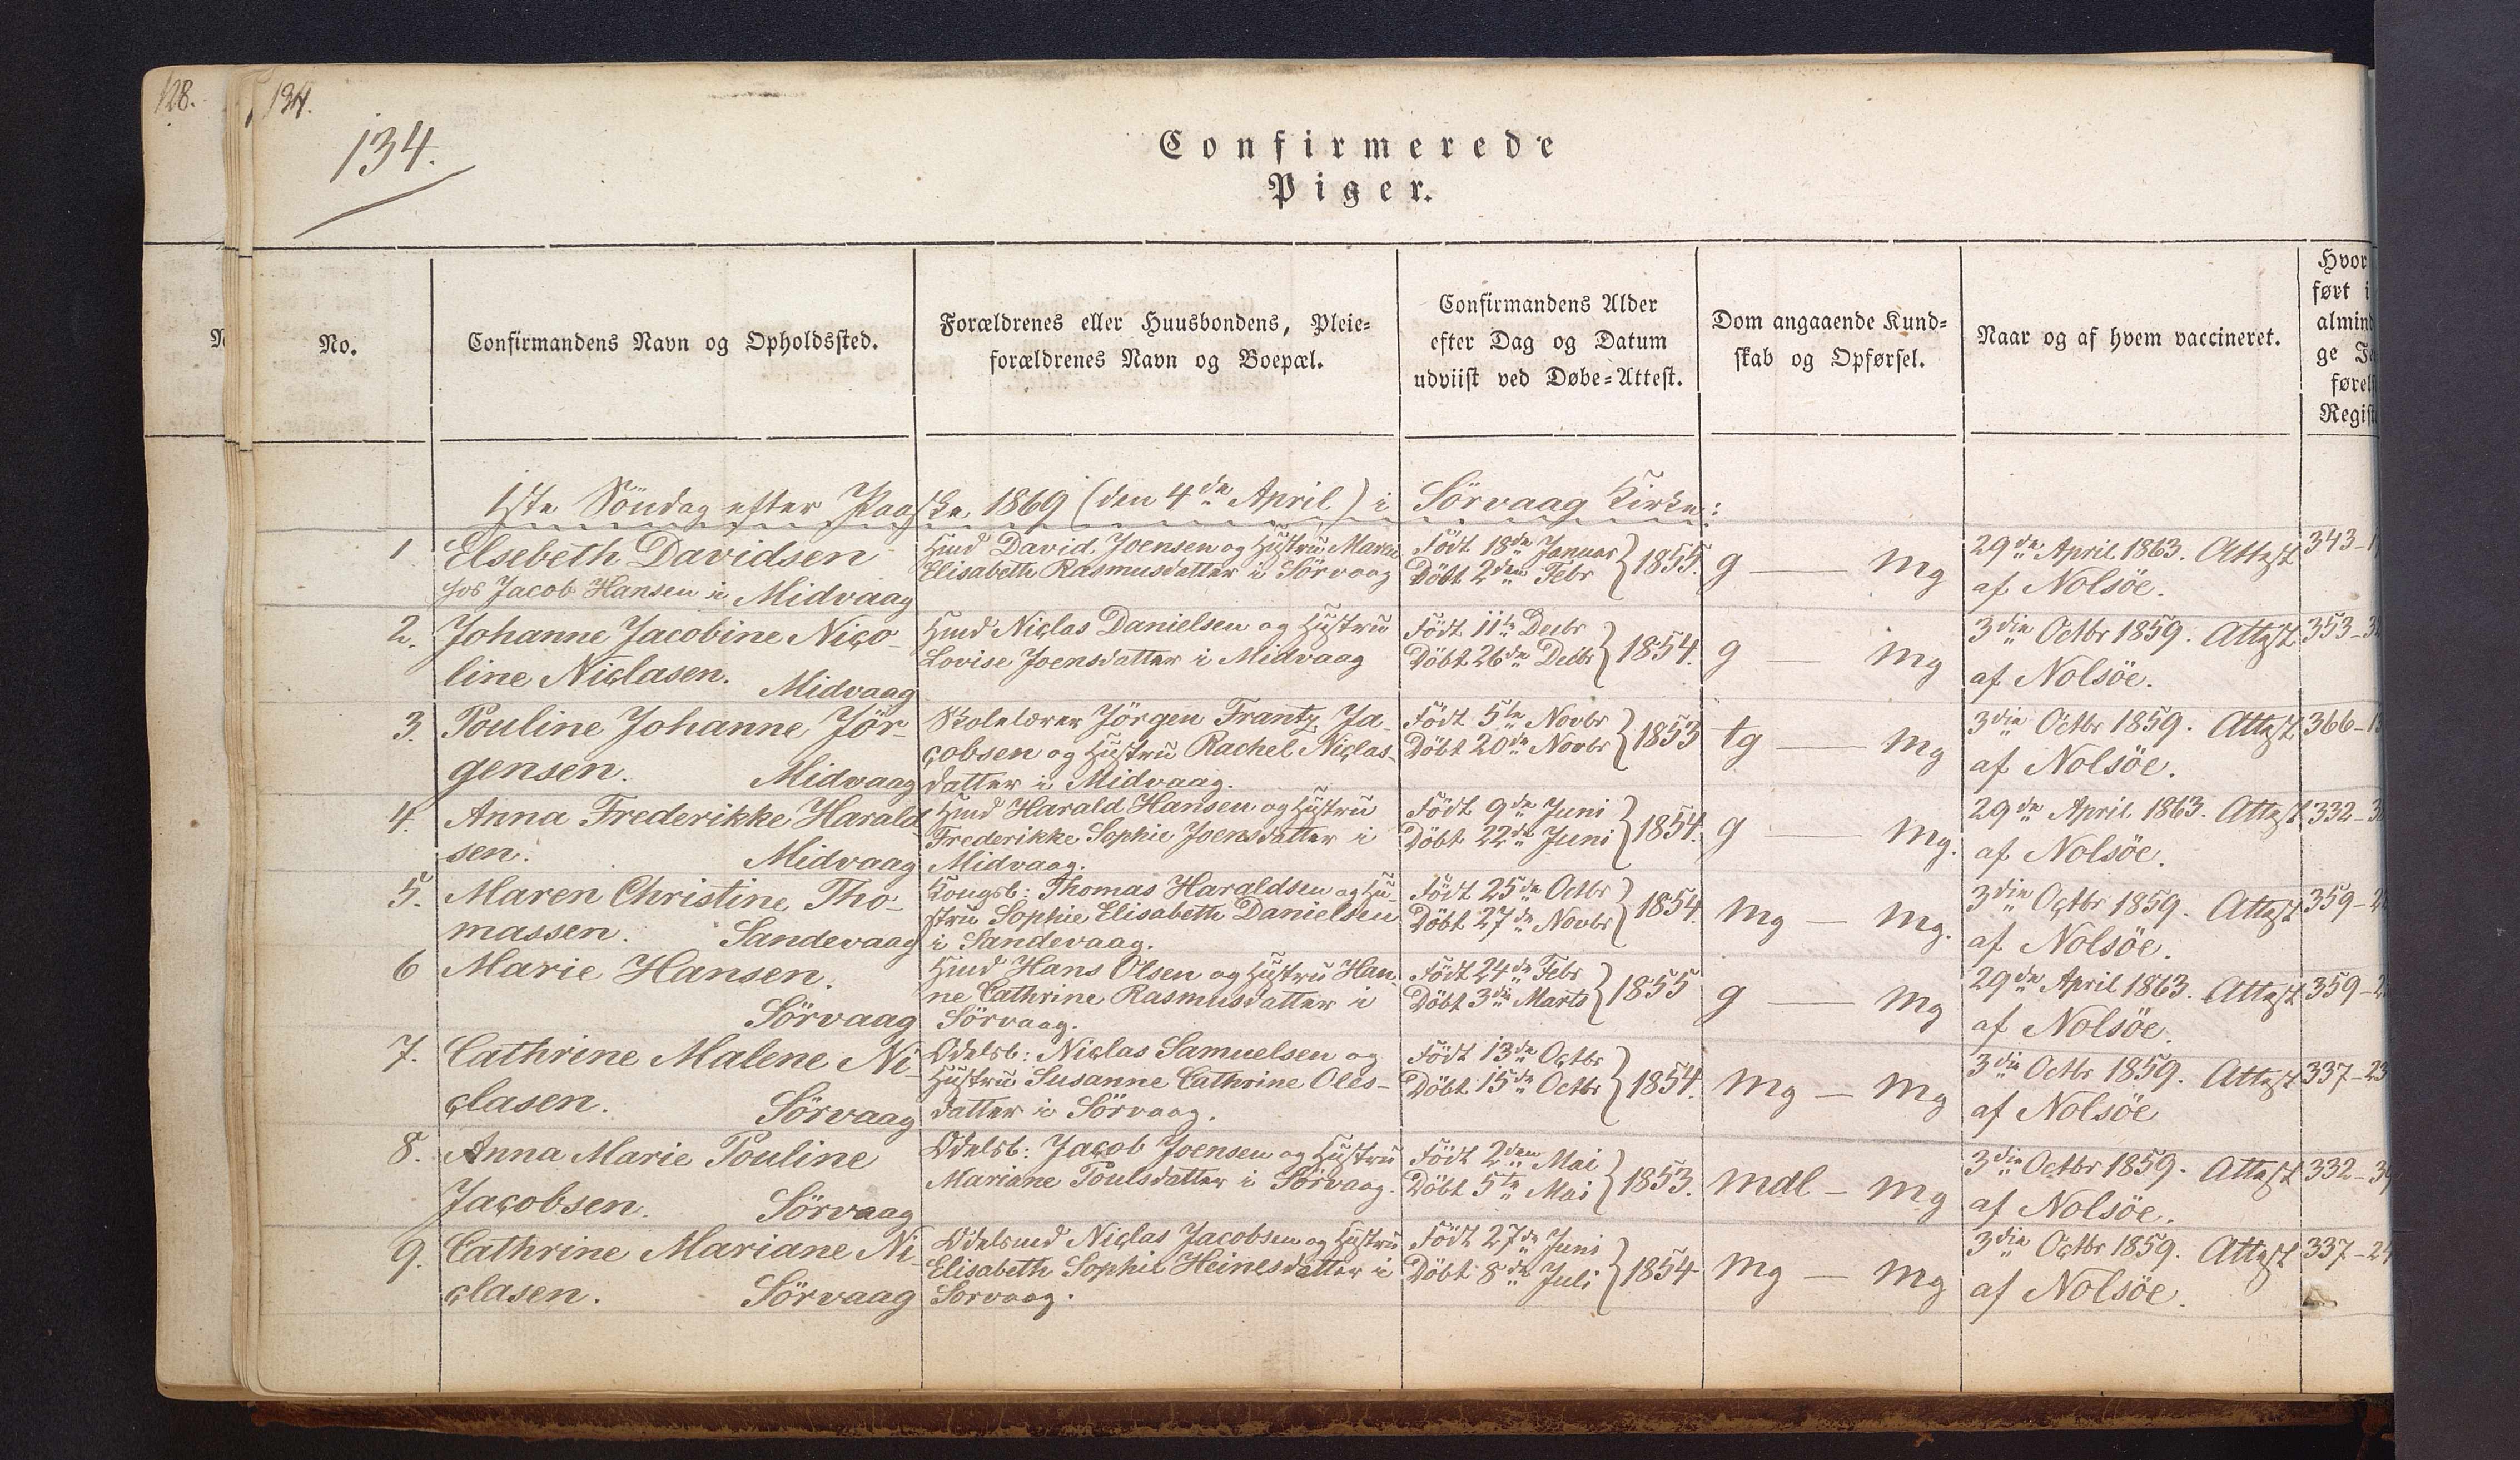 128.
134.
134.
Confirmerede
Piger.
No.
Confirmandens Navn og Opholdssted.
Forældrenes eller Huusbondens, Pleie=
forældrenes Navn og Boepæl.
Confirmandens Alder
efter Dag og Datum
udviist ved Døbe=Attest.
Dom angaaende Kund=
skab og Opførsel.
Naar og af hvem vaccineret.
Hvor
ført i
almind
ge Je
førels
Regist
1ste Söndag efter Paaske 1869 (den 4de April) i Sörvaag Kirke:
1 Elsebeth Davidsen
hos Jacob Hansen i Midvaag
Hmd David Joensen og Hustru Maren
Elisabeth Rasmusdatter i Sörvaag
Födt 18de Januar
Döbt 2den Febr } 1855.
g — mg
29de April 1863. Attest
af Nolsöe.
343-1
2. Johanne Jacobine Nico-
line Niclasen. Midvaag
Hmd Niclas Danielsen og Hustru
Lovise Joensdatter i Midvaag
Födt 11te Decbr
Döbt 26de Decbr } 1854.
g — mg
3die Octbr 1859. Attest
af Nolsöe.
353-3
3. Pouline Johanne Jör-
gensen. Midvaag
Skolelærer Jörgen Frantz Ja-
cobsen og Hustru Rachel Niclas-
datter i Midvaag.
Födt 5te Novbr
Döbt 20de Novbr } 1853
tg — mg
3die Octbr 1859. Attest
af Nolsöe.
366-1
4. Anna Frederikke Harald
sen. Midvaag
Hmd Harald Hansen og Hustru
Frederikke Sophie Joensdatter i
Midvaag.
Födt 9de Juni
Döbt 22de Juni } 1854.
g — mg.
29de April 1863. Attest
af Nolsöe.
332-3
5. Maren Christine Tho-
massen. Sandevaag
Kongsb: Thomas Haraldsen og Hu-
stru Sophie Elisabeth Danielsen
i Sandevaag.
Födt 25de Octbr
Döbt 27de Novbr } 1854.
mg — mg.
3die Octbr 1859. Attest
af Nolsöe.
359-2
6 Marie Hansen.
Sörvaag
Hmd Hans Olsen og Hustru Han-
ne Cathrine Rasmusdatter i
Sörvaag.
Födt 24de Febr
Döbt 3die Marts } 1855
g — mg
29de April 1863. Attest
af Nolsöe.
359-2
7. Cathrine Malene Ni-
clasen. Sörvaag
Odelsb: Niclas Samuelsen og
Hustru Susanne Cathrine Oles-
datter i Sörvaag.
Födt 13de Octbr
Döbt 15de Octbr } 1854.
mg — mg
3die Octbr 1859. Attest
af Nolsöe
337-23
8. Anna Marie Pouline
Jacobsen. Sörvaag
Odelsb: Jacob Joensen og Hustru
Mariane Poulsdatter i Sörvaag.
Födt 2den Mai
Döbt 5te Mai } 1853.
mdl - mg
3die Octbr 1859. Attest
af Nolsöe.
332-39
9. Cathrine Mariane Ni-
clasen. Sörvaag
Odelsmd Niclas Jacobsen og Hustru
Elisabeth Sophie Heinesdatter i
Sörvaag.
Födt 27de Juni
Döbt 8de Juli } 1854
mg — mg
3die Octbr 1859. Attest
af Nolsöe.
337-24